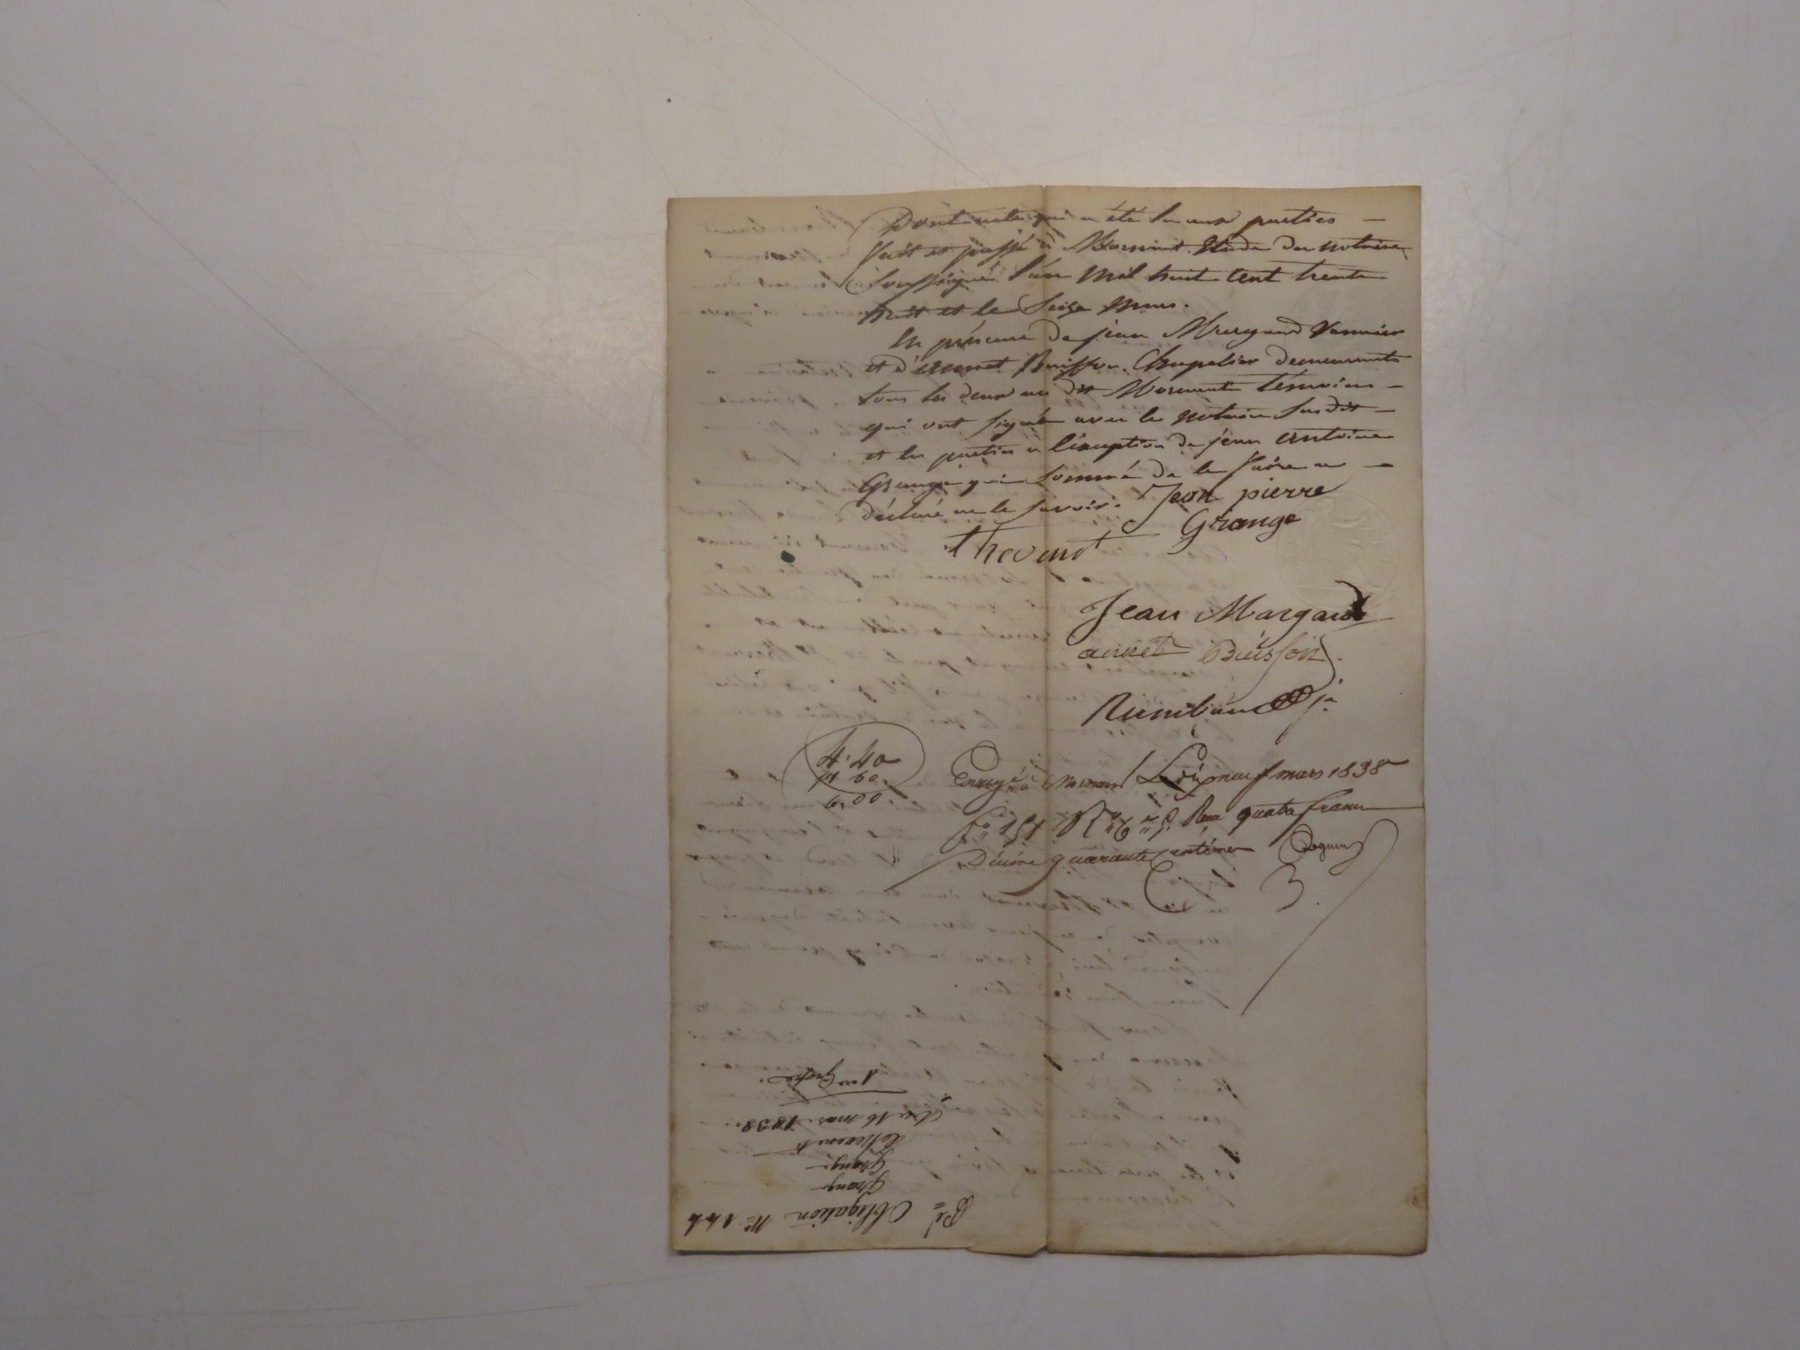 Dont acte qui a été lu aux parties —
fait et passé à Mornant Etude du notaire
soussigné l'an mil huit cent trente
huit et le seize mars.
En présence de jean Margaud Vannier
et d'annet Buisson Chapelier demeurants
tous les deux au dit Mornant témoins —
qui ont signé avec le notaire susdit —
et les parties à l'exception de jean antoine
Grange qui sommé de le faire a —
déclaré ne le savoir.
Jean pierre
Grange
thevenot
Jean Margaud
annet Buisson
4.40
1 60
6,00
Enregé à Mornant le dix neuf mars 1838
fo 151 Ro Reçu quatre francs
Décime quarante centimes
Pé Obligation No 144
Grange
Grange
à thevenot
Du 16 mars 1838.
1re Grosse.